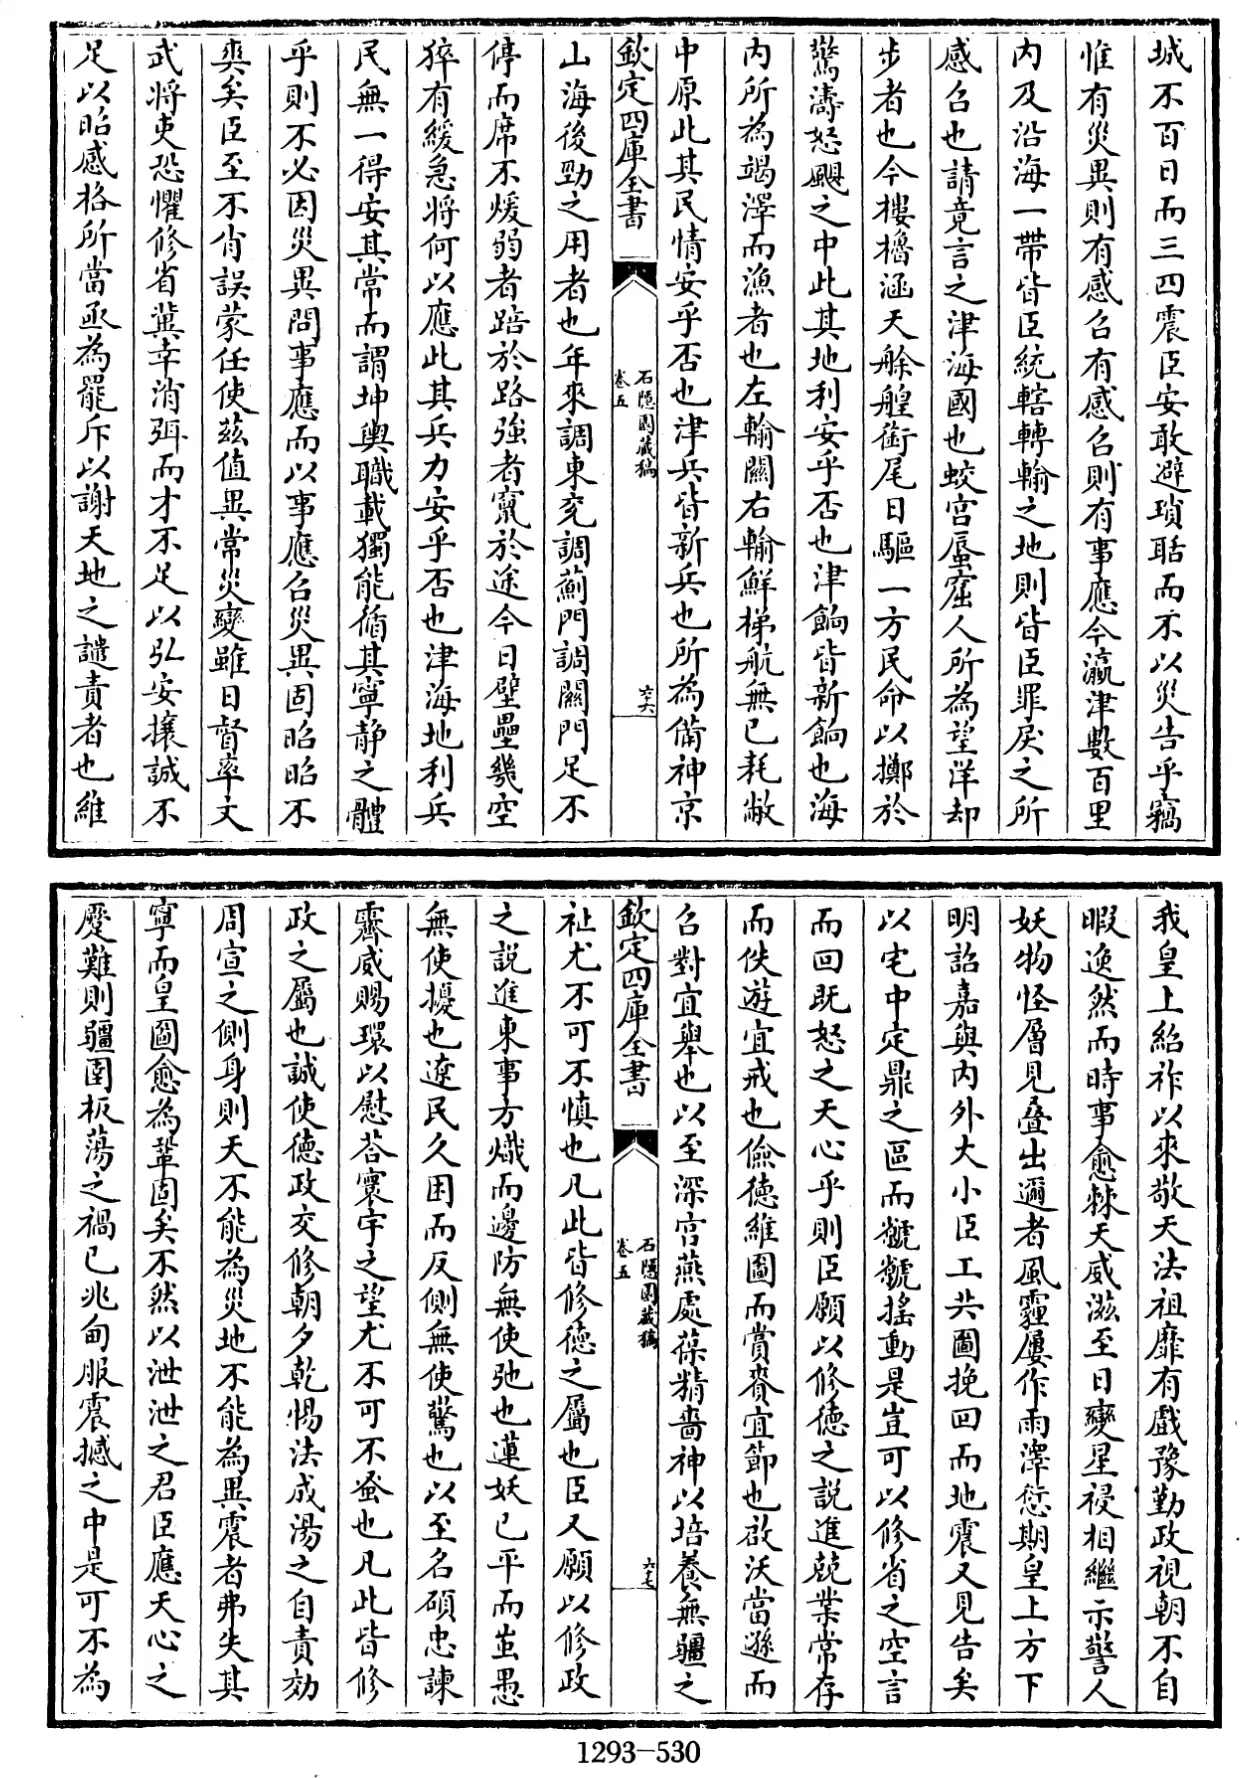 城不百日而三四震臣安敢避瑣聒而不以災告乎竊
惟有災異則有感召有感召則有事應今瀛津數百里
内及沿海一帶皆臣統轄轉輸之地則皆臣罪戾之所
感召也請竟言之津海國也蛟宫蜃窟人所為望洋却
步者也今樓櫓涵天艅艎銜尾日驅一方民命以擲於
驚濤怒颶之中此其地利安乎否也津餉皆新餉也海
内所為竭澤而漁者也左輸關右輸鮮梯航無已耗敝
中原此其民情安乎否也津兵皆新兵也所為備神京
欽定四庫全書
石隱園藏稿
卷五
六十六
山海後勁之用者也年來調東兖調薊門調關門足不
停而席不煖弱者踣於路強者竄於途今日壁壘幾空
猝有緩急將何以應此其兵力安乎否也津海地利兵
民無一得安其常而謂坤輿職載獨能循其寧靜之體
乎則不必因災異問事應而以事應召災異固昭昭不
爽矣臣至不肖誤蒙任使兹值異常災變雖日督率文
武將吏恐懼修省冀幸消弭而才不足以弘安攘誠不
足以昭感格所當亟為罷斥以謝天地之譴責者也維
我皇上紹祚以來敬天法祖靡有戲豫勤政視朝不自
暇逸然而時事愈棘天威滋至日變星祲相繼示警人
妖物怪層見叠出邇者風霾屢作雨澤愆期皇上方下
明詔嘉與内外大小臣工共圖挽回而地震又見告矣
以宅中定鼎之區而虩虩搖動是豈可以修省之空言
而回既怒之天心乎則臣願以修徳之説進兢業常存
而佚遊宜戒也儉徳維圖而賞賚宜節也啟沃當遜而
召對宜舉也以至深宫燕處葆精嗇神以培養無疆之
欽定四庫全書
石隱園藏稿
卷五
六十七
祉尤不可不慎也凡此皆修徳之屬也臣又願以修政
之説進東事方熾而邊防無使弛也蓮妖已平而蚩愚
無使擾也遼民久困而反側無使驚也以至名碩忠諫
霽威賜環以慰答寰宇之望尤不可不亟也凡此皆修
政之屬也誠使德政交修朝夕乾惕法成湯之自責効
周宣之側身則天不能為災地不能為異震者弗失其
寧而皇圖愈為鞏固矣不然以泄泄之君臣應天心之
蹙難則疆圉板蕩之禍已兆甸服震撼之中是可不為
1293-530